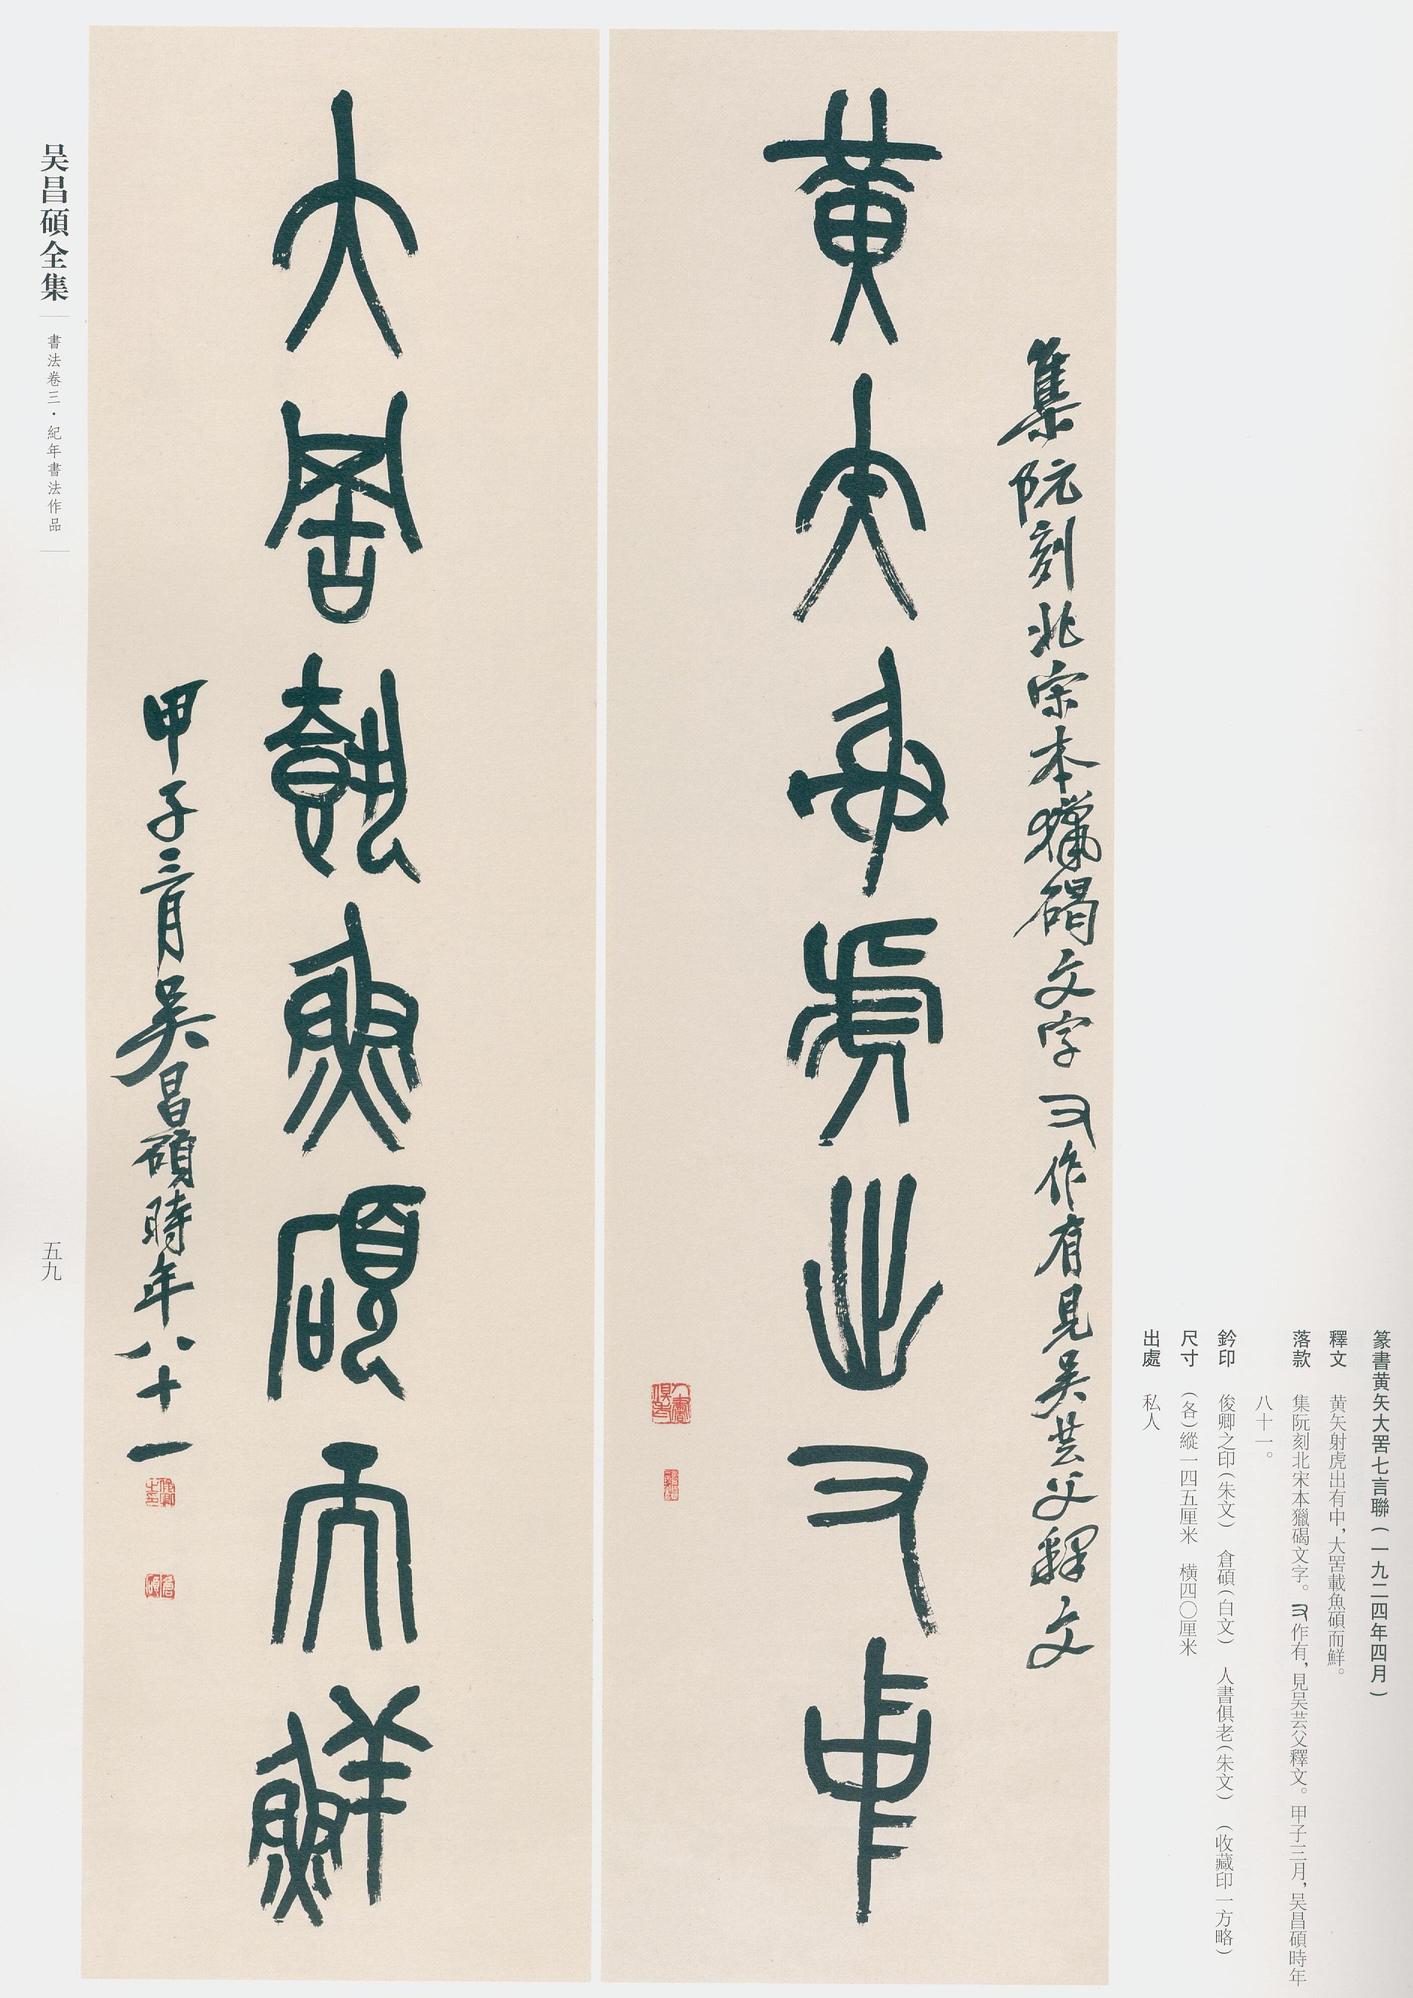 篆書黄矢大罟七言聯(一九二四年四月)
釋文　黄矢射虎出有中,大罟載魚碩而鮮。
落款　集阮刻北宋本獵碣文字。又作有,見吴芸父釋文。甲子三月,吴昌碩時年
八十一。
鈐印　俊卿之印(朱文)　倉碩(白文)　人書俱老(朱文)　(收藏印一方略)
尺寸　(各)縱一四五厘米　横四〇厘米
出處　私人
集阮刻北宋本獵碣文字又作有見吴芸父釋文
黄矢射虎出又中
人書俱老
大罟載魚碩而鮮
甲子三月吴昌碩時年八十一
俊卿之印
倉碩
吴昌碩全集
書法卷三·紀年書法作品
五九